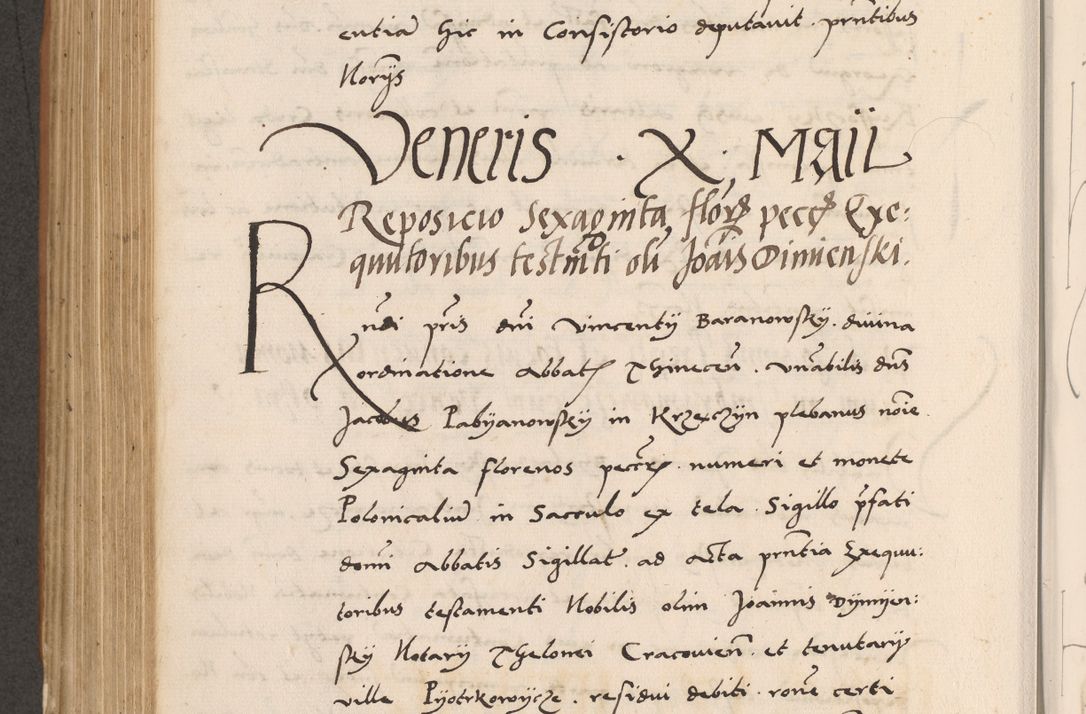 entiā hic in Consistorio deputavit prntibus
Norijs
Veneris . X . Maii
Reposicio sexaginta florẽ peccẽ Exe:
quutoribus testmti oli Joãis Dimienski.
Rndi prīs dnī Vincentij Baranowsky divina
ordinatione Abbatis Thinecen̄ . Vnābilis dn̄s
Jacobus Pabyanowsky in Krzexczyn plebanus noīe
Sexaginta florenos peccē numeri et monete
Polonicaliū in Sacculo ex tela . Sigillo p̄fati
domī Abbatis Sigillat̄ . ad Acta prn̄tia Exequu:
toribus testamenti Nobilis olim Joannis Dymijen:
sky Notarij Thelonei Cracovien̄ . et tenutarij
ville Pijotrkowijcze . residui debiti . rone certi